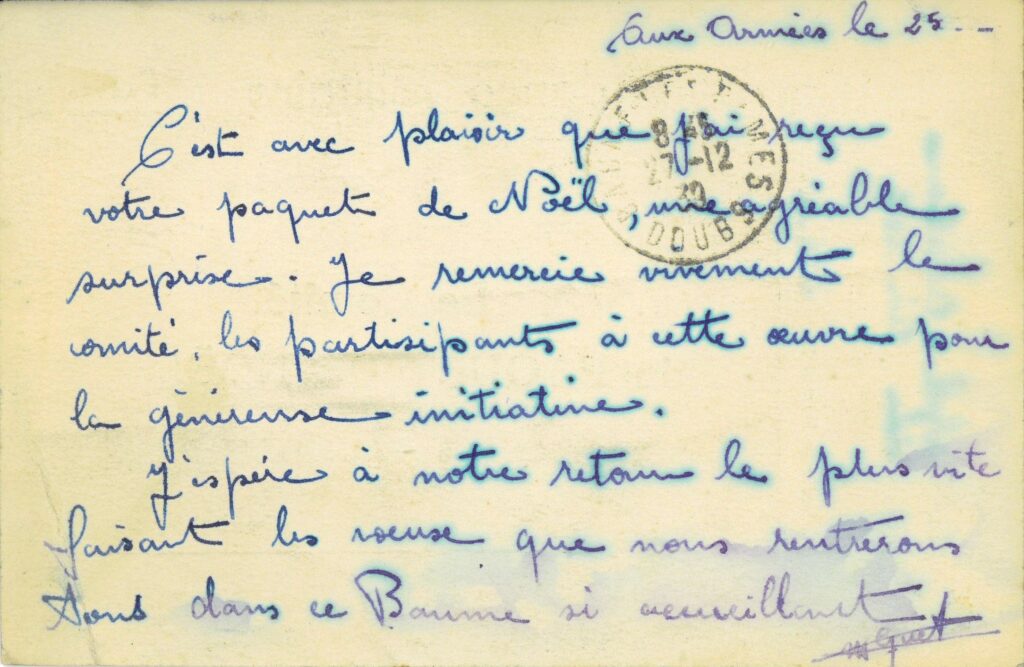 Aux Armées le 25
C'est avec plaisir que j'ai reçu
votre paquet de Noël, une agréable
surprise. Je remercie vivement le
comité, les partisipants à cette œuvre pour
la généreuse initiative.
J'espère à notre retour le plus vite
faisant les voeuse que nous rentrerons
tous dans ce Baume si accueillant
8
27-12
39
DOUBS